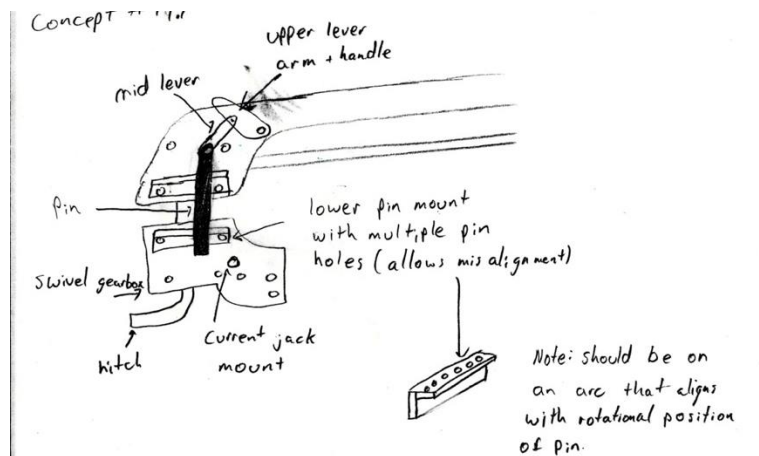 Concept #
upper lever
arm + handle
mid lever
Pin
lower pin mount
with multiple pin
holes (allows misalignment)
Swivel gearbox
hitch
Current jack
mount
Note: should be on
an arc that aligns
with rotational position
of pin.